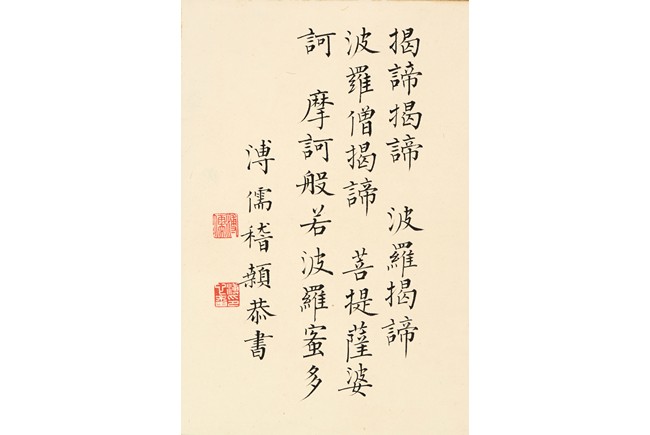 揭諦揭諦 波羅揭諦
波羅僧揭諦 菩提薩婆
訶 摩訶般若波羅蜜多
溥儒稽顙恭書